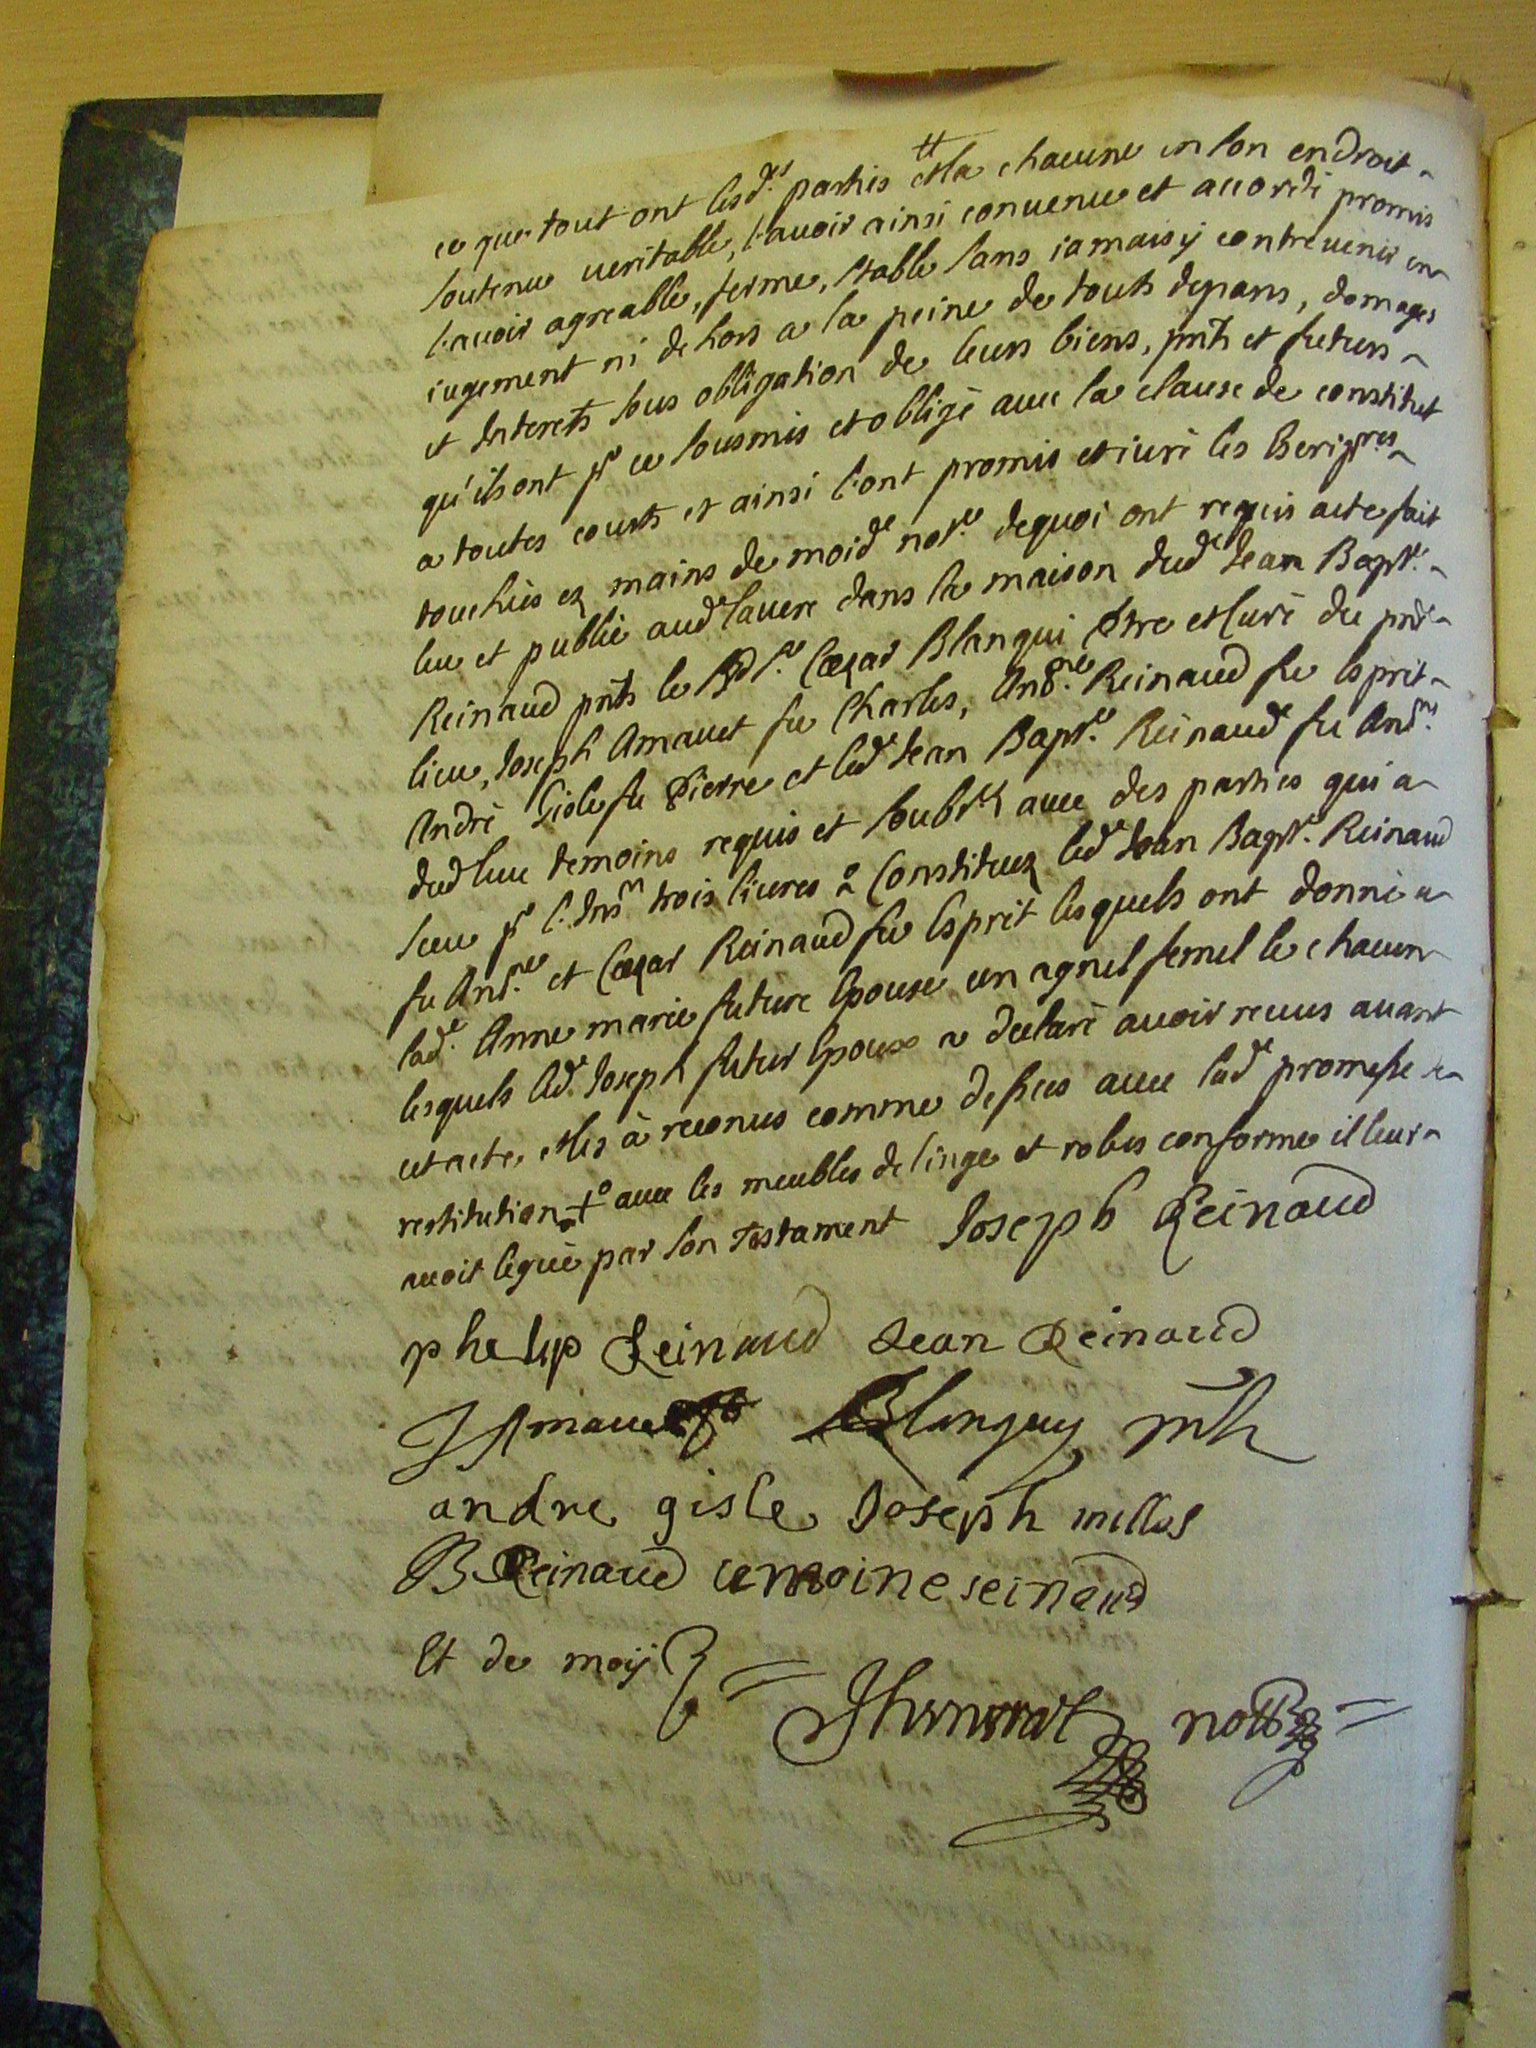 ce que tout ont lesd.es parties tt et la chacune en son endroit
soutenu veritable, l'avoir ainsi convenu et accordé promis
l'avoir agreable, ferme, stable sans iamais ÿ contrevenir en
iugement ni dehors a la peine de touts depans, domages
et interets sous obligation de leurs biens, pnts et futurs
qu'ils ont pr ce sousmis et obligé avec la clause de constitut
a toutes courts et ainsi l'ont promis et iuré les Scrip.res
touchées ez mains de moid.e not.e dequoi ont requis acte fait
leu et publié aud.e Sauere dans la maison dud.e Jean Bapt.e
Reinaud pnts le Rd Sr. Cæzar Blanqui Ptre et Curé du pnt
lieu, Joseph Amavet fu Charles, And.ne Reinaud fu Esprit
André Gisle fu Pierre et led.e Jean Bapt.e Reinaud fu And.ne
dud lieu temoins requis et soubsr.és avec des parties qui a
sceu pr l'Ins.m trois livres Constituez led.e Jean Bapt.e Reinaud
fu And.ne et Cæzar Reinaud fu Esprit lesquels ont donné a
lad.e Anne marie future Epouse un agnel femelle chacun
lesquels led.e Joseph futur Epoux a declaré avoir receus avant
cet acte, et les à reconus comme dessus avec lad.e promesse de
restitution + avec les meubles de linge et robes conforme il leur
avoit legué par son Testament Joseph Reinaud
phelip Reinaud Jean Reinaud
J Amavet Blanquy
andre gisle Joseph millos
B Reinaud antoine reinaud
Et de moÿ
not.re